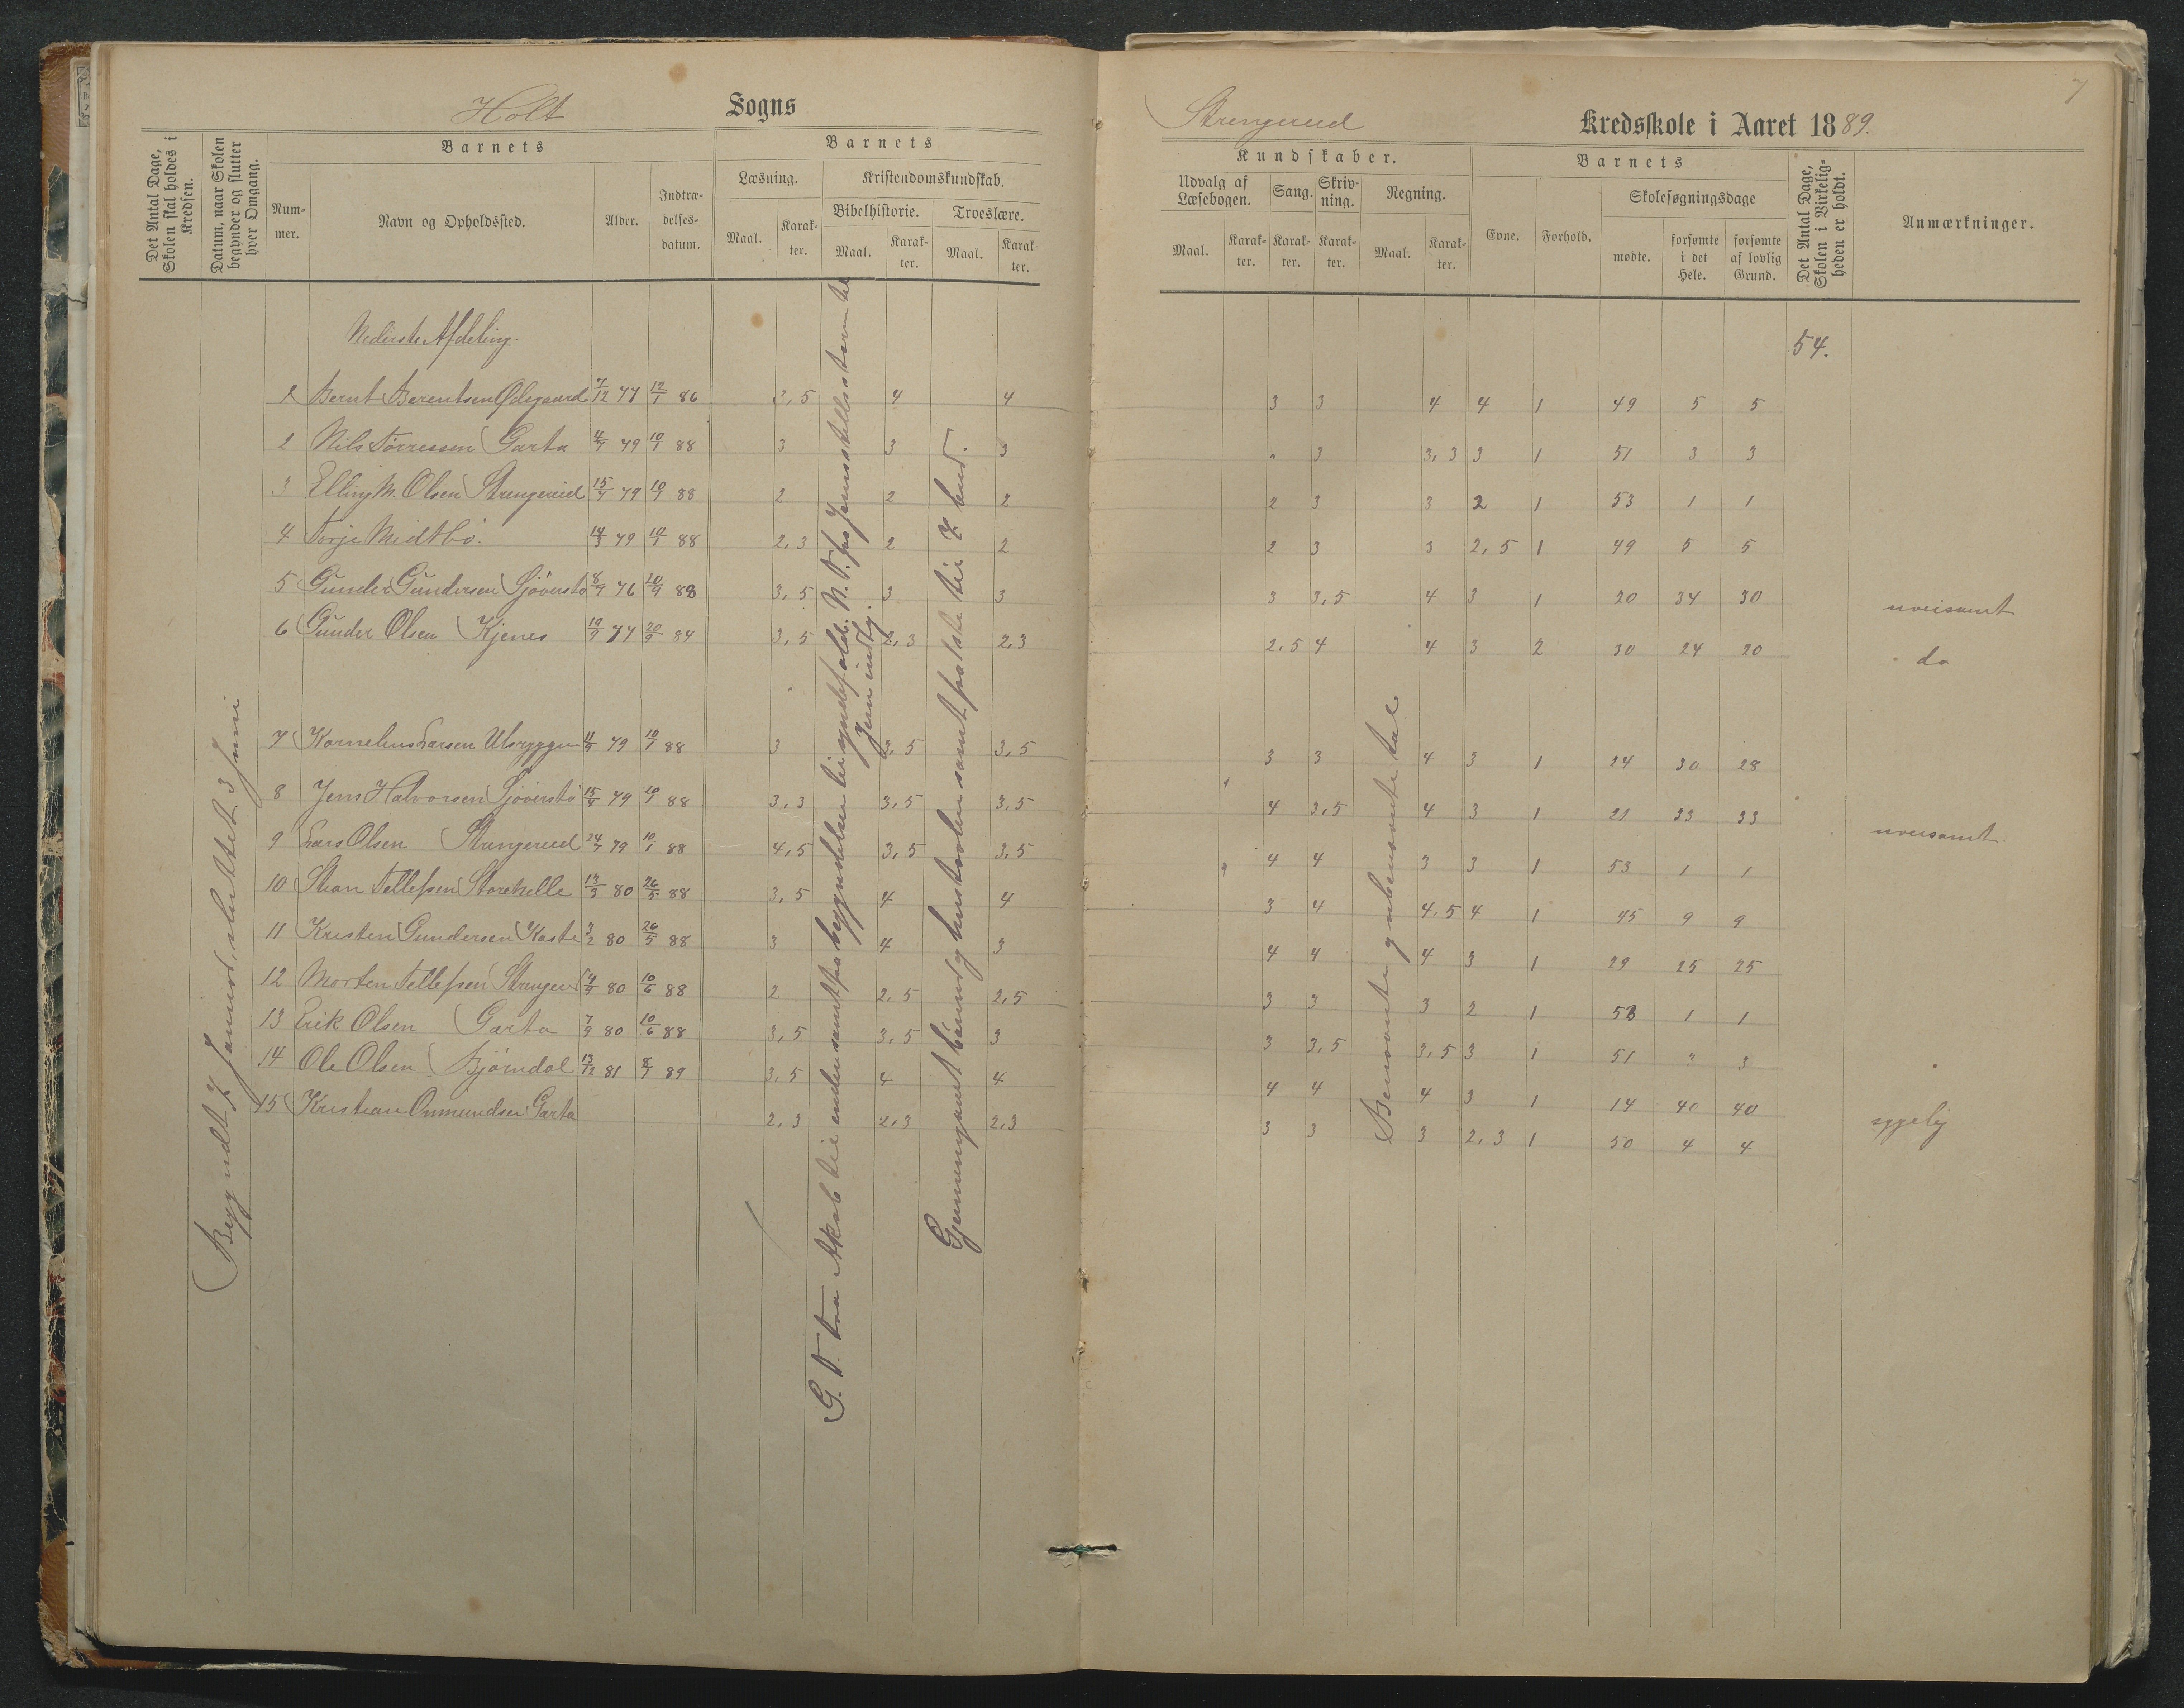 Holt Sogns
Det Antal Dage, Skolen skal holdes i Kredsen.
Datum, naar Skolen begynder og slutter hver Omgang.
Barnets
Num-mer.
Navn og Opholdssted.
Alder.
Indtræ-delses-datum.
Barnets
Læsning.
Maal.
Karak-ter.
Kristendomskundskab.
Bibelhistorie.
Maal.
Karak-ter.
Troeslære.
Maal.
Karak-ter.
Nederste Afdeling.
1 Bernt Berentsen Ødegaard 7/12 77 12/1 86 3,5 4 4
2 Nils Torressen Garta 4/7 79 10/1 88 3 3 3
3 Elling M. Olsen Strengereid 15/7 79 10/1 88 2 2 2
4 Torje Midtbö. 14/3 79 10/1 88 2,3 2 2
5 Gunder Gundersen Sjöverstö 8/9 76 10/9 88 3,5 3 3
6 Gunder Olsen Kjenes 19/9 77 20/9 84 3,5 2,3 2,3
7 Kornelius Larsen 79 10/1 88 3 3,5 3,5
8 Jens Halvorsen Sjöverstö 15/9 79 10/1 88 3,3 3,5 3,5
9 Lars Olsen Strengereid 24/7 79 10/1 88 4,5 3,5 3,5
10 Stian Tellefsen Storekelle 13/3 80 26/5 88 3,5 4 4
11 Kristen Gundersen Kaste 3/2 80 26/5 88 3 4 3
12 Morten Tellefsen Strenger 80 10/6 88 2 2,5 2,5
13 Erik Olsen Garta 7/9 80 10/6 88 3,5 3,5 3
14 Ole Olsen Björndal 13/12 81 8/1 89 3,5 4 4
15 Kristian Onmundsen Garta 2,3 2,3 2,3
Begyndt 7 Januar, sluttet 3 Juni
G. T. fra Akab til enden samt fra begyndelsen til syndefald. N. T. fra
Jerusalem
Gjennemgaaet börnenes samt til 7 bud.
7
Strengereid Kredsskole i Aaret 1889.
Kundskaber.
Udvalg af Læsebogen.
Maal.
Karak-ter.
Sang.
Karak-ter.
Skriv-ning.
Karak-ter.
Regning.
Maal.
Karak-ter.
Barnets
Evne.
Forhold.
Skolesøgningsdage
mødte.
forsømte i det Hele.
forsømte af lovlig Grund.
Det Antal Dage, Skolen i Virkelig-heden er holdt.
Anmærkninger.
54.
3 3 4 4 1 49 5 5
" 3 3,3 3 1 51 3 3
2 3 3 2 1 53 1 1
2 3 3 2,5 1 49 5 5
3 3,5 4 3 1 20 34 30 uveisamt
2,5 4 4 3 2 30 24 20 do
3 3 4 3 1 24 30 28
4 3,5 4 3 1 21 33 33 uveisamt
4 4 3 3 1 53 1 1
3 4 4,5 4 1 45 9 9
4 4 4 3 1 29 25 25
3 3 3 2 1 53 1 1
3 3,5 3,5 3 1 51 3 3
4 4 4 3 1 14 40 40 sygelig
3 3 3 2,3 1 50 4 4
Benævnte og ubenævnte tal